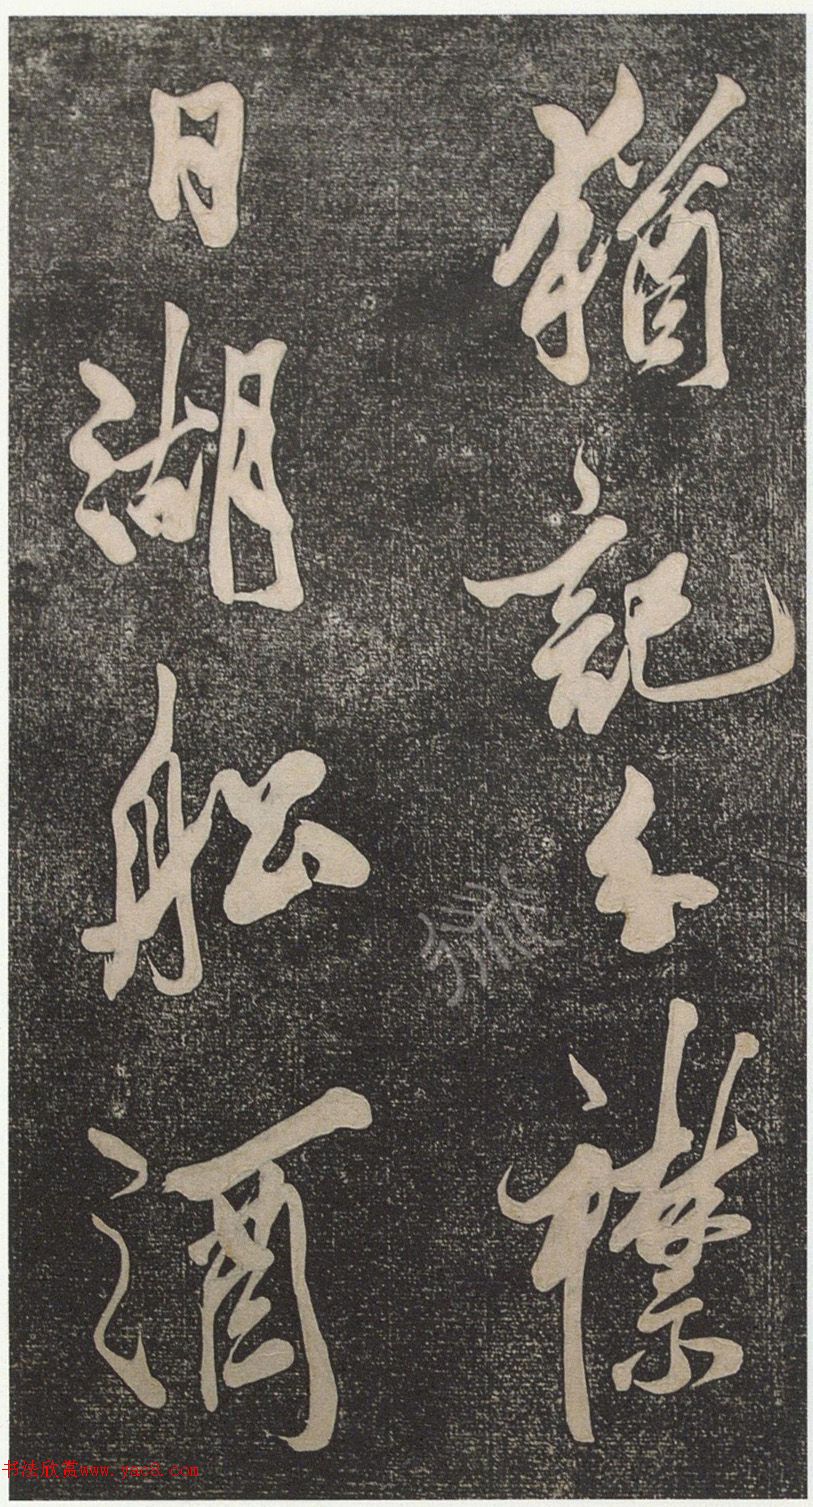 猶記分襟
日湖舩酒
书法欣赏www.yac8.com